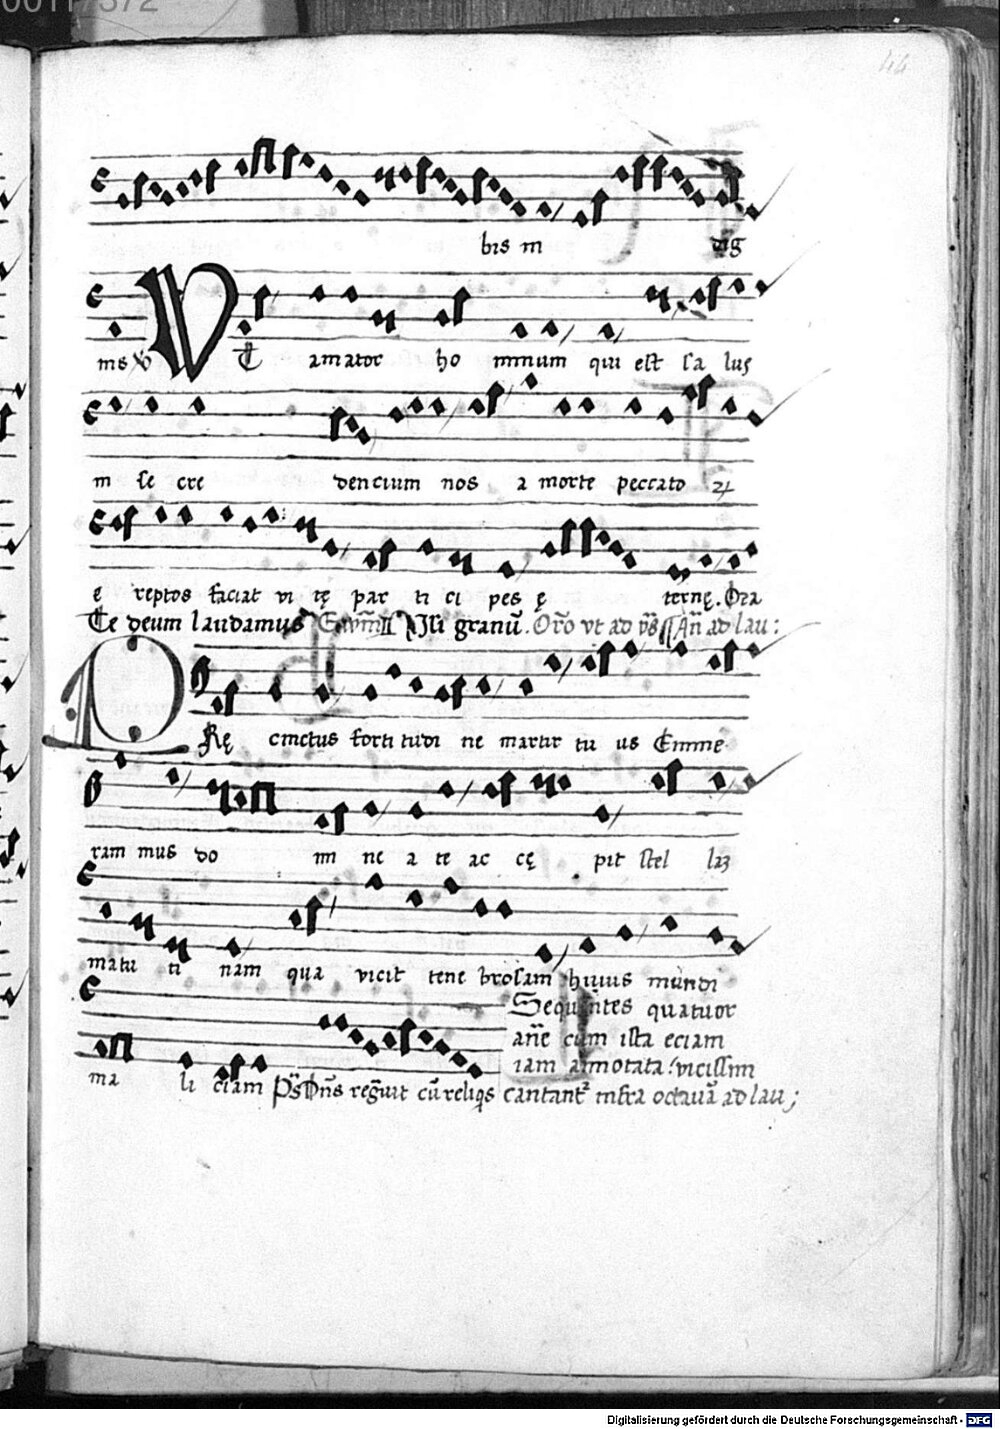 44
bis in dig
nis ℣ Vt amator ho minum qui est sa lus
in se cre dencium nos a morte peccato ꝝ
e reptos faciat vi tę par ti ci pes ę ternę. Ora
Te deum laudamus Nisi granū. Orō vt ad p̄s Añ ad lau:
PRę cinctus forti tudi ne martir tu us Emme
ram mus do mi ne a te ac cę pit stel laz
matu ti nam qua vicit tene brosam huius mundi
Sequentes quatuor
añe cum ista eciam
iam annotata: vicissim
ma li ciam Ps Dñs regnvit cū reliqs cantantr infra octauā ad lau;
Digitalisierung gefördert durch die Deutsche Forschungsgemeinschaft - DFG